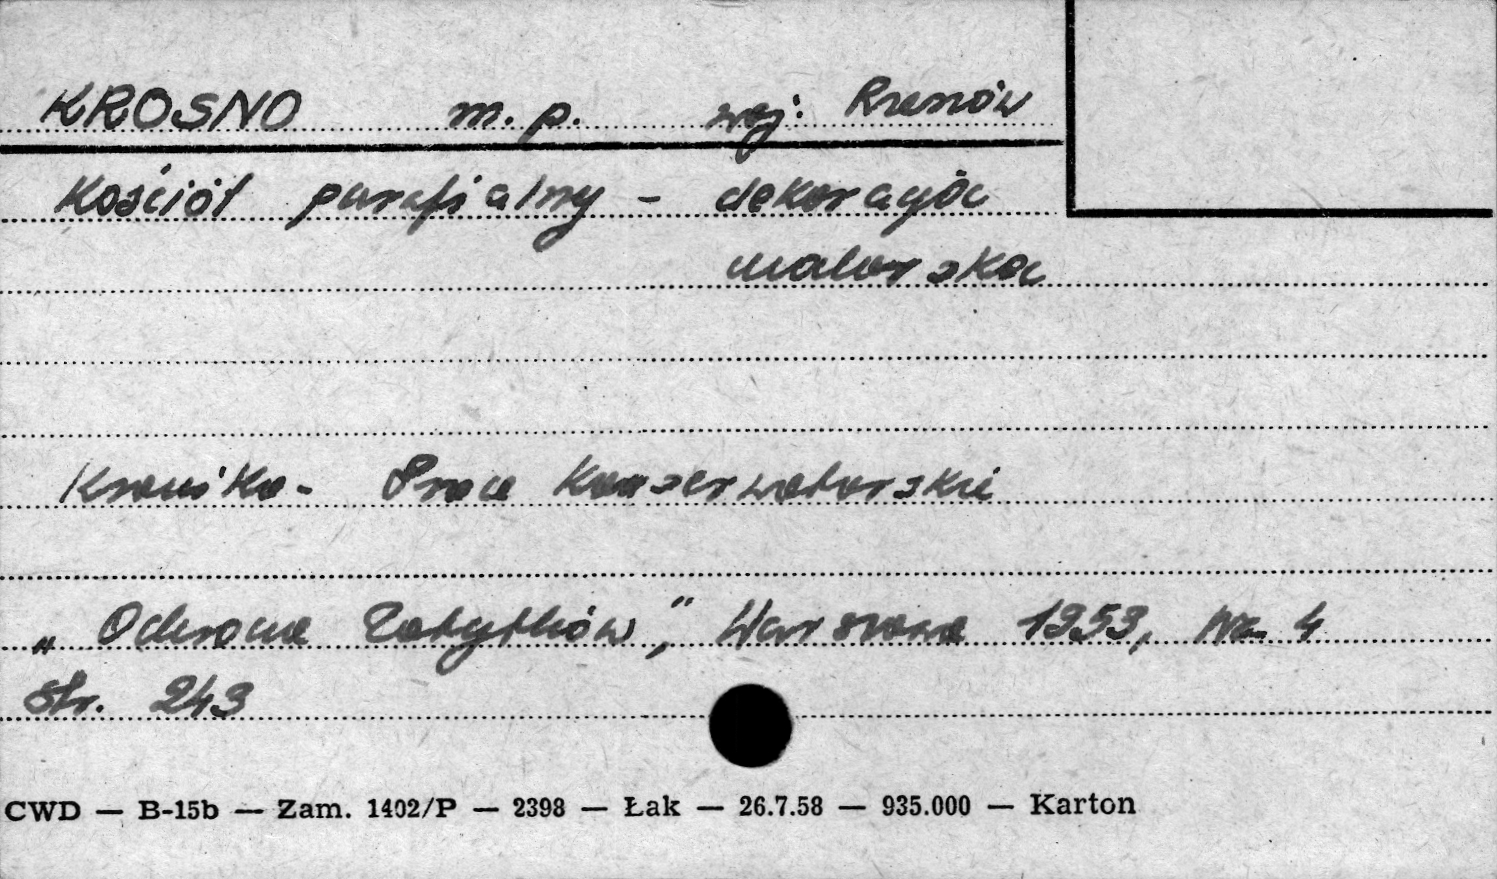 KROSNO m. p. woj: Rzeszów
Kościół parafialny - dekoracja
malarska
Kronika - Prace konserwatorskie
„Ochrona Zabytków," Warszawa 1953, Nr. 4
Str. 243
CWD — B-15b — Zam. 1402/P — 2398 — Łak — 26.7.58 — 935.000 — Karton